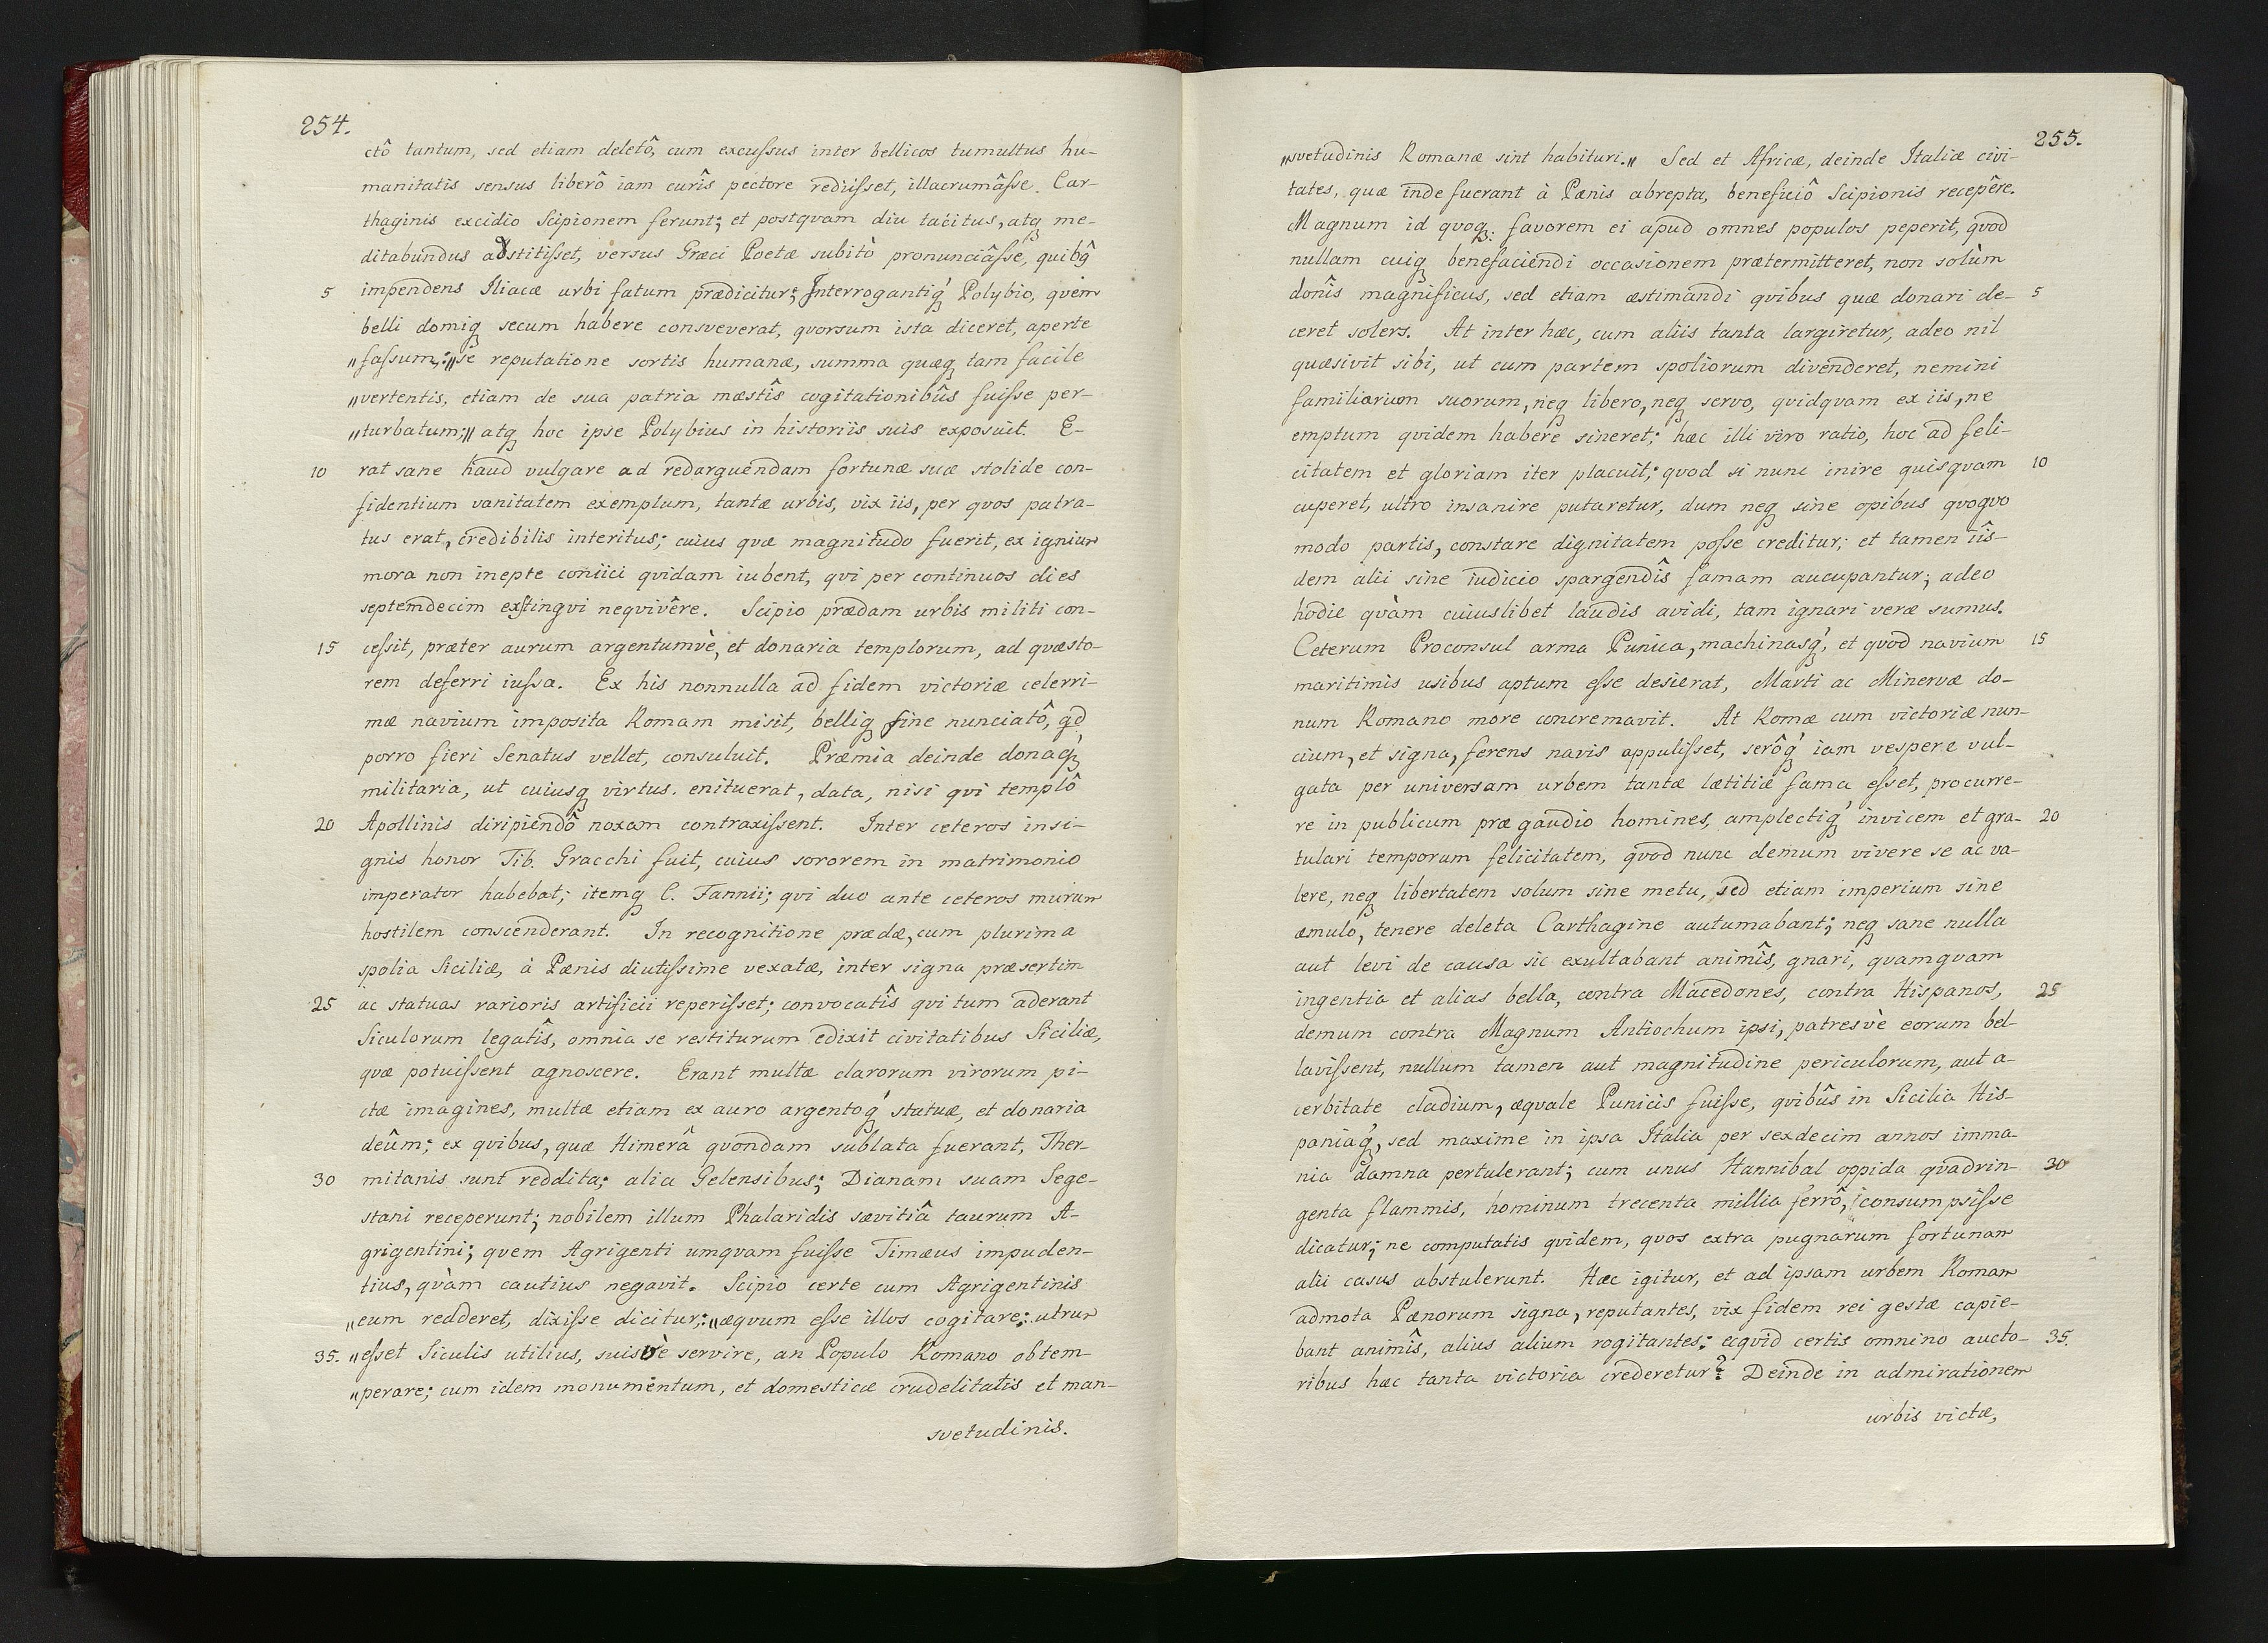 254.
ctô tantum, sed etiam deletô, cum excussus inter bellicos tumultus hu-
manitatis sensus liberô iam curîs pectore rediisset, illacrumâsse. Car-
thaginis excidio Scipionem ferunt; et postqvam diu tacitus, atq me-
ditabundus adstitisset, versus Græci Poetæ subitò pronunciâsse, quibq̂
5 impendens Iliacæ urbi fatum prædicitur; Interrogantiq́ Polybio, qvem
belli domiq secum habere consveverat, qvorsum ista diceret, aperte
„fassum,: „se reputatione sortis humanæ, summa quæq tam facile
„vertentis, etiam de sua patria mæstîs cogitationibûs fuisse per-
„turbatum;„ atq hoc ipse Polybius in historiis suis exposuit. E-
10 rat sane haud vulgare ad redarguendam fortunæ suæ stolide con-
fidentium vanitatem exemplum, tantæ urbis, vix iis, per qvos patra-
tus erat, credibilis interitus; cuius qvæ magnitudo fuerit, ex ignium
mora non inepte coniici qvidam iubent, qvi per continuos dies
septemdecim exstingvi neqvivêre. Scipio prædam urbis militi con-
15 cessit, præter aurum argentumvè, et donaria templorum, ad qvæsto-
rem deferri iussa. Ex his nonnulla ad fidem victoriæ celerri-
mæ navium imposita Romam misit, belliq fine nunciatô, qd
porro fieri Senatus vellet, consuluit. Præmia deinde donaq
militaria, ut cuiusq virtus. enituerat, data, nisi qvi templô
20 Apollinis diripiendô noxam contraxissent. Inter ceteros insi-
gnis honor Tib. Gracchi fuit, cuius sororem in matrimonio
imperator habebat; itemq C. Fannii; qvi duo ante ceteros murum
hostilem conscenderant. In recognitione prædæ, cum plurima
spolia Siciliæ, à Pænis diutissime vexatæ, inter signa præsertim
25 ac statuas rarioris artificii reperisset; convocatîs qvi tum aderant
Siculorum legatîs, omnia se restiturum edixit civitatibus Siciliæ,
qvæ potuissent agnoscere. Erant multæ clarorum virorum pi-
ctæ imagines, multæ etiam ex auro argentoq́ statuæ, et donaria
deûm; ex qvibus, quæ Himerâ qvondam sublata fuerant, Ther-
30 mitanis sunt reddita; alia Gelensibus; Dianam suam Sege-
stani receperunt; nobilem illum Phalaridis sævitiâ taurum A-
grigentini; qvem Agrigenti umqvam fuisse Timæus impuden-
tius, qvàm cautius negavit. Scipio certe cum Agrigentinis
„eum redderet, dixisse dicitur;:„æqvum esse illos cogitare; utrum
35. „esset Siculis utilius, suisvè servire, an Populo Romano obtem-
„perare; cum idem monumentum, et domesticæ crudelitatis et man-
svetudinis.
255.
„svetudinis Romanæ sint habituri.„ Sed et Africæ, deinde Italiæ civi-
tates, quæ inde fuerant à Pænis abrepta, beneficiô Scipionis recepêre.
Magnum id qvoq: favorem ei apud omnes populos peperit, qvod
nullam cuiq benefaciendi occasionem prætermitteret, non solùm
donîs magnificus, sed etiam æstimandi qvibus quæ donari de- 5
ceret solers. At inter hæc, cum aliis tanta largiretur, adeo nil
quæsivit sibi, ut cum partem spoliorum divenderet, nemini
familiarium suorum, neq libero, neq servo, qvidqvam ex iis, ne
emptum qvidem habere sineret; hæc illi viro ratio, hoc ad feli-
citatem et gloriam iter placuit; qvod si nunc inire quisqvam 10
cuperet, ultro insanire putaretur, dum neq sine opibus qvoqvo
modo partis, constare dignitatem posse creditur; et tamen iîs-
dem alii sine iudicio spargendîs famam aucupantur; adeo
hodie qvàm cuiuslibet laudis avidi, tam ignari veræ sumus.
Ceterum Proconsul arma Punica, machinasq́, et qvod navium 15
maritimis usibus aptum esse desierat, Marti ac Minervæ do-
num Romano more concremavit. At Romæ cum victoriæ nun-
cium, et signa, ferens navis appulisset, serôq́ iam vespere vul-
gata per universam urbem tantæ lætitiæ fama esset, procurre-
re in publicum præ gaudio homines, amplectiq́ invicem et gra- 20
tulari temporum felicitatem, qvod nunc demum vivere se ac va-
lere, neq libertatem solum sine metu, sed etiam imperium sine
æmulo, tenere deleta Carthagine autumabant; neq sane nulla
aut levi de causa sic exultabant animîs, gnari, qvamqvam
ingentia et alias bella, contra Macedones, contra Hispanos, 25
demum contra Magnum Antiochum ipsi, patresvè eorum bel-
lavissent, nullum tamen aut magnitudine periculorum, aut a-
cerbitate cladium, æqvale Punicis fuisse, qvibûs in Sicilia His-
paniaq́, sed maxime in ipsa Italia per sexdecim annos imma-
nia damna pertulerant; cum unus Hannibal oppida qvadrin- 30
genta flammis, hominum trecenta millia ferrô, consumpsisse
dicatur; ne computatis qvidem, quos extra pugnarum fortunam
alii casus abstulerunt. Hæc igitur, et ad ipsam urbem Romam
admota Pænorum signa, reputantes, vix fidem rei gestæ capie-
bant animîs, alius alium rogitantes; eqvid certis omnino aucto- 35.
ribus hæc tanta victoria crederetur? Deinde in admirationem
urbis victæ,